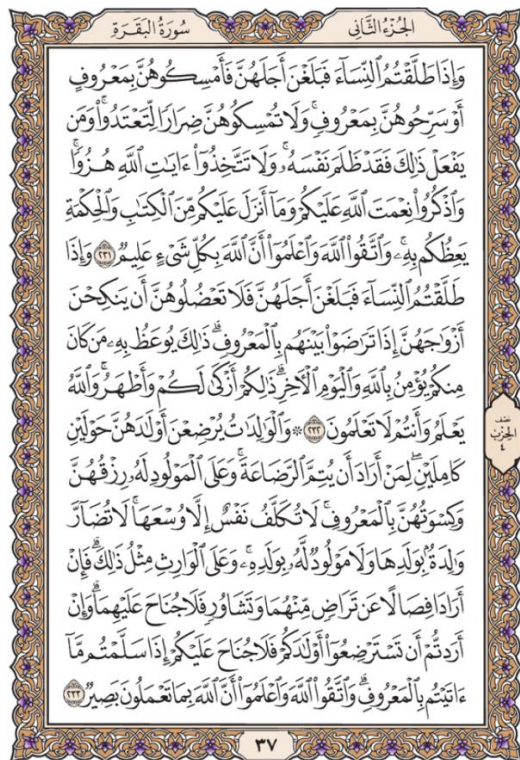 الجُزْءُ الثَّانِي
سُورَةُ البَقَرَةِ
وَإِذَا طَلَّقْتُمُ ٱلنِّسَآءَ فَبَلَغْنَ أَجَلَهُنَّ فَأَمْسِكُوهُنَّ بِمَعْرُوفٍ
أَوْ سَرِّحُوهُنَّ بِمَعْرُوفٖۚ وَلَا تُمْسِكُوهُنَّ ضِرَارٗا لِّتَعْتَدُواْۚ وَمَن
يَفْعَلْ ذَٰلِكَ فَقَدْ ظَلَمَ نَفْسَهُۥۚ وَلَا تَتَّخِذُوٓاْ ءَايَٰتِ ٱللَّهِ هُزُوٗاۚ
وَٱذْكُرُواْ نِعْمَتَ ٱللَّهِ عَلَيْكُمْ وَمَآ أَنزَلَ عَلَيْكُم مِّنَ ٱلْكِتَٰبِ وَٱلْحِكْمَةِ
يَعِظُكُم بِهِۦۚ وَٱتَّقُواْ ٱللَّهَ وَٱعْلَمُوٓاْ أَنَّ ٱللَّهَ بِكُلِّ شَيْءٍ عَلِيمٞ ٢٣١ وَإِذَا
طَلَّقْتُمُ ٱلنِّسَآءَ فَبَلَغْنَ أَجَلَهُنَّ فَلَا تَعْضُلُوهُنَّ أَن يَنكِحْنَ
أَزْوَٰجَهُنَّ إِذَا تَرَٰضَوْاْ بَيْنَهُم بِٱلْمَعْرُوفِۗ ذَٰلِكَ يُوعَظُ بِهِۦ مَن كَانَ
مِنكُمْ يُؤْمِنُ بِٱللَّهِ وَٱلْيَوْمِ ٱلْأٓخِرِۗ ذَٰلِكُمْ أَزْكَىٰ لَكُمْ وَأَطْهَرُۚ وَٱللَّهُ
يَعْلَمُ وَأَنتُمْ لَا تَعْلَمُونَ ٢٣٢ ۞ وَٱلْوَٰلِدَٰتُ يُرْضِعْنَ أَوْلَٰدَهُنَّ حَوْلَيْنِ
كَامِلَيْنِۖ لِمَنْ أَرَادَ أَن يُتِمَّ ٱلرَّضَاعَةَۚ وَعَلَى ٱلْمَوْلُودِ لَهُۥ رِزْقُهُنَّ
وَكِسْوَتُهُنَّ بِٱلْمَعْرُوفِۚ لَا تُكَلَّفُ نَفْسٌ إِلَّا وُسْعَهَاۚ لَا تُضَآرَّ
وَٰلِدَةُۢ بِوَلَدِهَا وَلَا مَوْلُودٞ لَّهُۥ بِوَلَدِهِۦۚ وَعَلَى ٱلْوَارِثِ مِثْلُ ذَٰلِكَۗ فَإِنْ
أَرَادَا فِصَالًا عَن تَرَاضٖ مِّنْهُمَا وَتَشَاوُرٖ فَلَا جُنَاحَ عَلَيْهِمَاۗ وَإِنْ
أَرَدتُّمْ أَن تَسْتَرْضِعُوٓاْ أَوْلَٰدَكُمْ فَلَا جُنَاحَ عَلَيْكُمْ إِذَا سَلَّمْتُم مَّآ
ءَاتَيْتُم بِٱلْمَعْرُوفِۗ وَٱتَّقُواْ ٱللَّهَ وَٱعْلَمُوٓاْ أَنَّ ٱللَّهَ بِمَا تَعْمَلُونَ بَصِيرٞ ٢٣٣
نصف
الحزب
٤
٣٧